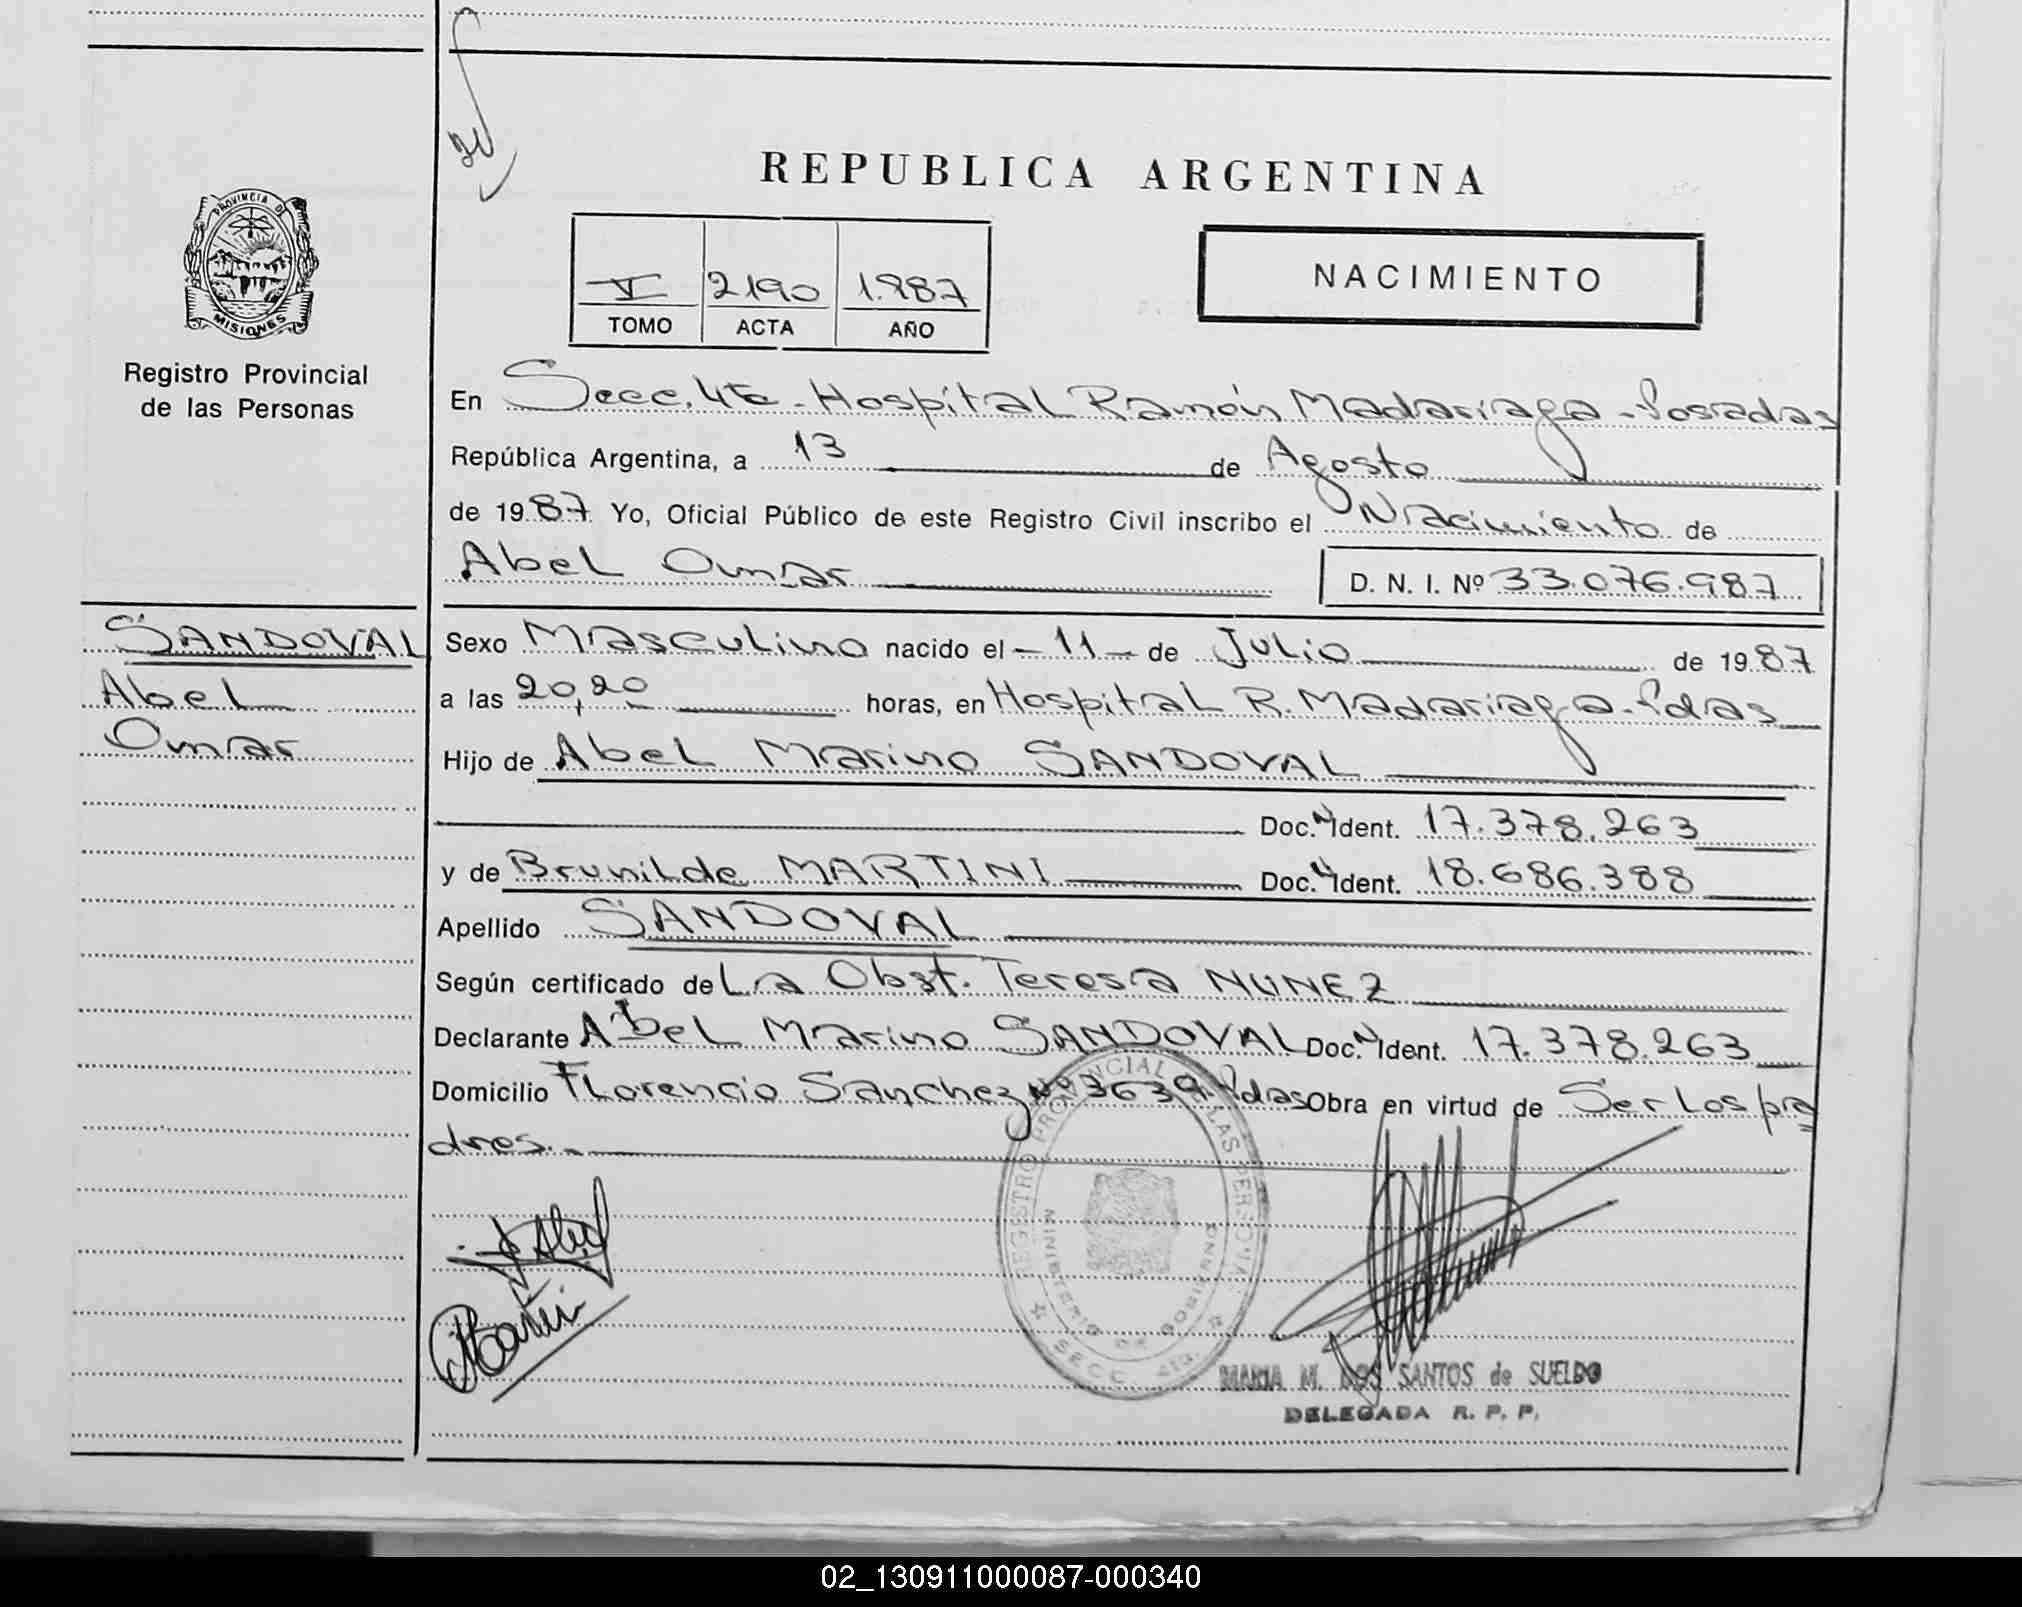 REPUBLICA ARGENTINA
PROVINCIA DE
MISIONES
Registro Provincial
de las Personas
V 2190 1.987
TOMO ACTA AÑO
NACIMIENTO
En Secc. 4ta - Hospital Ramón Madariaga - Posadas
República Argentina, a 13 de Agosto
de 1987 Yo, Oficial Público de este Registro Civil inscribo el Nacimiento de
Abel Omar D. N. I. Nº 33.076.987
SANDOVAL
Abel
Omar
Sexo Masculino nacido el - 11 - de Julio de 1987
a las 20,20 horas, en Hospital R. Madariaga - Pdas
Hijo de Abel Marino SANDOVAL
Doc. N Ident. 17.378.263
y de Brunilde MARTINI Doc. N Ident. 18.686.388
Apellido SANDOVAL
Según certificado de La Obst. Teresa NUNEZ
Declarante Abel Marino SANDOVAL Doc. N Ident. 17.378.263
Domicilio Florencio Sanchez Nº 3639 - Pdas Obra en virtud de Ser los pa
dres.-
REGISTRO PROVINCIAL DE LAS PERSONAS
MINISTERIO DE GOBIERNO
SECC. 4ta.
MARIA M. DOS SANTOS de SUELDO
DELEGADA R. P. P.
02_130911000087-000340